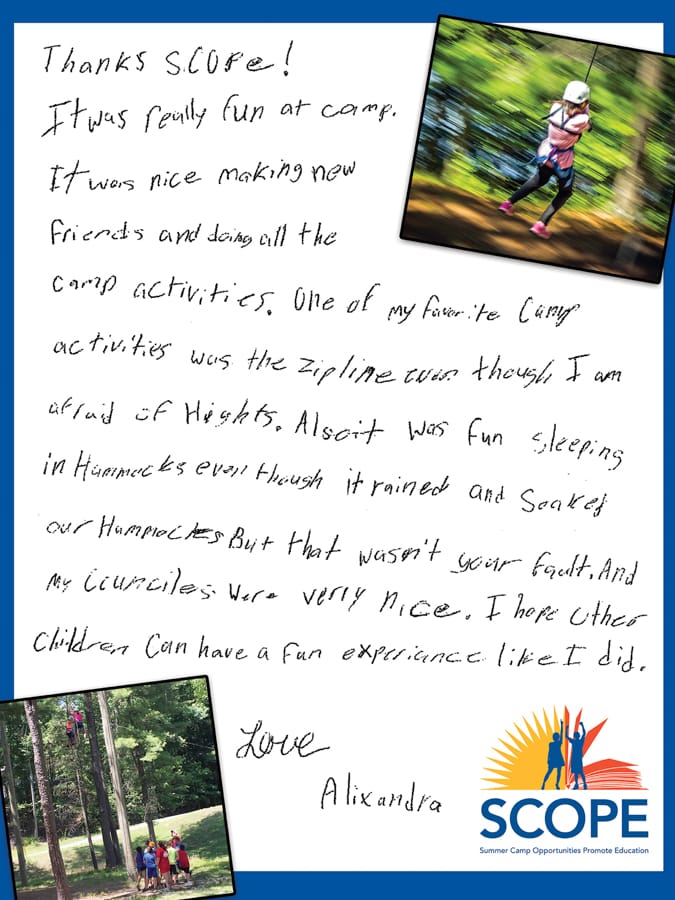 Thanks SCOPE!
It was really fun at camp.
It was nice making new
friends and doing all the
camp activities. One of my favorite Camp
activities was the Zipline even though I am
afraid of Hights. Also it was fun sleeping
in Hammocks even though it rained and Soaked
our Hammockes But that wasn't your fault. And
My Counciles were verry nice. I hope Other
Children Can have a fun experience like I did.
Love
Alixandra
SCOPE
Summer Camp Opportunities Promote Education